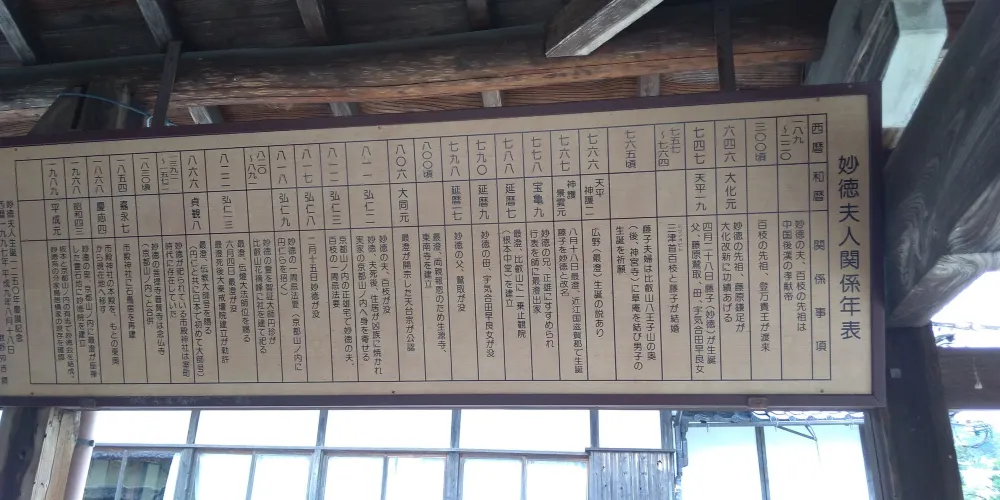 妙徳夫人関係年表
西暦
和暦
関係事項
一八九
〜二二〇
妙徳の夫、百枝の先祖は
中国後漢の孝献帝
三〇〇頃
百枝の先祖、登万貴王が渡来
六四六
大化元
妙徳の先祖、藤原鎌足が
大化改新に功績あげる
七四七
天平一九
四月二十八日、藤子(妙徳)が生誕
父、藤原鷲取・母、宇気合田早良女
七五七
〜七六四
三津首百枝と藤子が結婚
七六五頃
藤子夫婦は比叡山八王子山の奥
(後、神宮寺)に草庵を結び男子の
生誕を祈願
七六六
天平
神護二
広野(最澄)生誕の説あり
七六七
神護
景雲元
八月十八日、最澄、近江国滋賀郡で生誕
藤子を妙徳と改名
七七八
宝亀九
妙徳の兄、正雄にすすめられ
行表を師に最澄出家
七八八
延暦七
最澄、比叡山に一乗止観院
(根本中堂)を建立
七九〇
延暦九
妙徳の母、宇気合田早良女が没
七九八
延暦一七
妙徳の父、鷲取が没
八〇〇頃
最澄、両親報恩のため生源寺、
東南寺を建立
八〇六
大同元
最澄が開宗した天台宗が公認
八一一
弘仁二
妙徳の夫、百枝が没
妙徳、夫死後、住居が凶賊に焼かれ
実家の京都山ノ内へ身を寄せる
八一二
弘仁三
京都山ノ内の正雄宅で妙徳の夫、
百枝の一周忌法要
八一七
弘仁八
二月十五日妙徳が没
八一八
弘仁九
妙徳の一周忌法要(京都山ノ内に
円仁らを招く)
八一〇
〜八九
妙徳の霊を智証大師円珍が
比叡山花摘峰に社を建て祀る
八二二
弘仁一三
最澄、伝燈大法師位を賜る
六月四日最澄が没
最澄没後大乗戒壇院建立が勅許
八六六
貞観八
最澄、伝教大師号を賜る
(円仁と共に日本で初めて大師号)
妙徳が祀られている市殿神社は室町
時代に存在していた
八三〇頃
妙徳の菩提寺善賢寺は念仏寺
(京都山ノ内)と合併
八五四
嘉永七
市殿神社に石鳥居を再建
八六八
慶応四
一九六八
昭和四三
一九八九
平成元
妙徳夫人生誕一二五〇年慶讃記念
西暦一九九七年・平成九年八月十八日